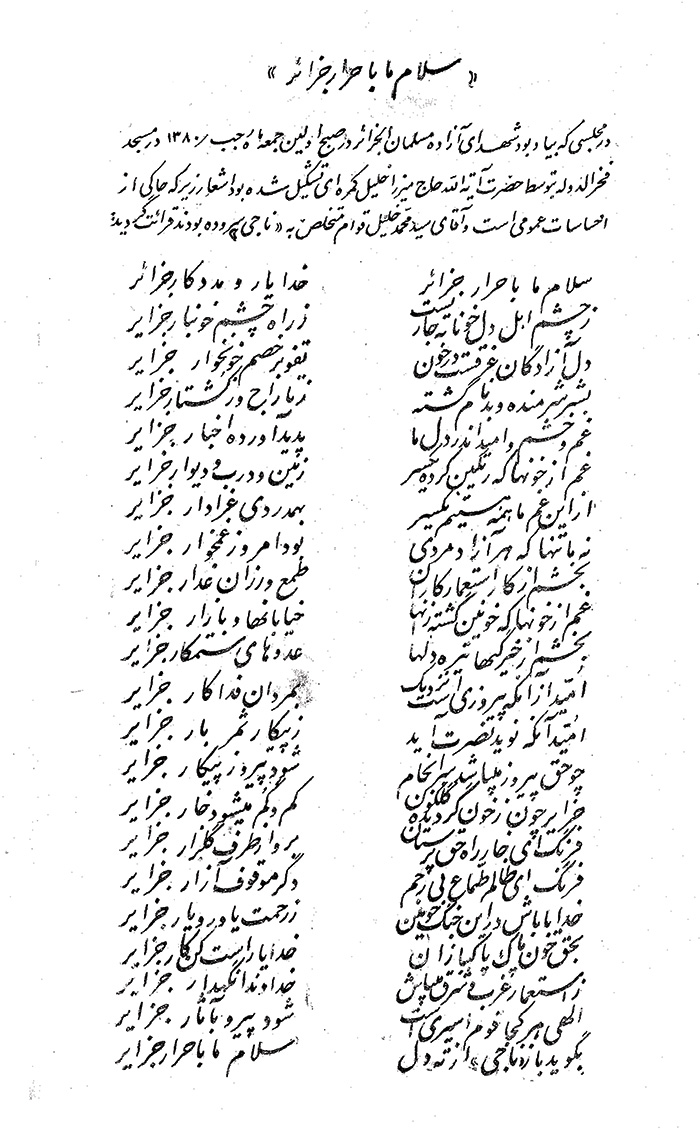 « سلام ما باحرار جزائر »
در مجلسی که بیاد بود شهدای آزاده مسلمان الجزائر در صبح اولین جمعه ماه رجب /۱۳۸۰ در مسجد
فخرالدوله توسط حضرت آیة الله حاج میرزا خلیل کمره‌ای تشکیل شده بود اشعار زیر که حاکی از
احساسات عمومی است و آقای سید محمد خلیل قوام متخلص به «ناجی» سروده بودند قرائت گردید:
سلام ما باحرار جزائر خدا یار و مددکار جزائر
ز چشم اهل دل خونابه جاریست ز راه چشم خونبار جزایر
دل آزادگان غرقست در خون تفو بر خصم خونخوار جزایر
بشر شرمنده و بدنام گشته ز تاراج و ز کشتار جزایر
غم و خشم و امید اندر دل ما پدید آورده اخبار جزایر
غم از خونها که رنگین کرده یکسر زمین و درب و دیوار جزایر
از این غم ما همه هستیم یکسر بهمدردی عزادار جزایر
نه ما تنها که هر آزاد مردی بود امروز غمخوار جزایر
بخشم از کار استعمار کاران طمع ورزان غدار جزایر
غم از خونها که خونین گشته زنها خیابانها و بازار جزایر
بخشم از خیرگیها تیره دلها عدوهای ستمکار جزایر
امید از آنکه پیروزی است نزدیک بمردان فداکار جزایر
امید آنکه نوید نصرت آید ز پیکار ثمر بار جزایر
چو حق پیروز میباشد سرانجام شود پیروز پیکار جزایر
جزایر چون ز خون گردیده گلگون کم و گم میشود خار جزایر
فرنگ ای خار راه حق پرستان برو از طرف گلزار جزایر
فرنگ ای ظالم طماع بی رحم دگر موقوف آزار جزایر
خدایا باش در این جنگ خونین ز رحمت یاور و یار جزایر
بحق خون پاک پاکبازان خدایا راست کن کار جزایر
ز استعمار غرب و شرق میباش خداوندا نگهدار جزایر
الهی هر کجا قوم اسیری است شود پیرو بآثار جزایر
بگوید باز «ناجی» از ته دل سلام ما باحرار جزایر